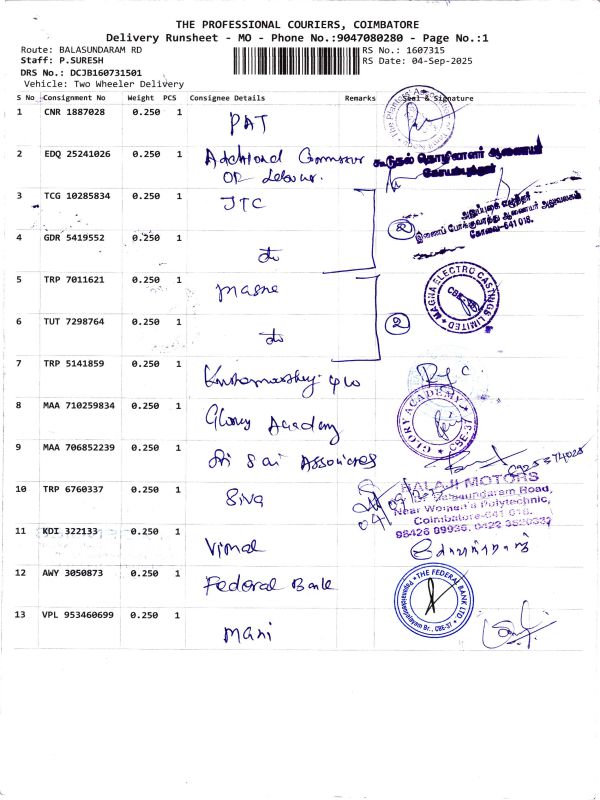 THE PROFESSIONAL COURIERS, COIMBATORE
Delivery Runsheet - MO - Phone No.:9047080280 - Page No.:1
Route: BALASUNDARAM RD
RS No.: 1607315
Staff: P.SURESH
RS Date: 04-Sep-2025
DRS No.: DCJB160731501
Vehicle: Two Wheeler Delivery
S No Consignment No Weight PCS Consignee Details Remarks Seal & Signature
1 CNR 1887028 0.250 1 PAT
2 EDQ 25241026 0.250 1 கூடுதல் தொழிலாளர் ஆணையர்
கோயம்புத்தூர்
3 TCG 10285834 0.250 1 JTC
இணைப் போக்குவரத்து ஆணையர் அலுவலகம்
கோவை-641 018.
4 GDR 5419552 0.250 1 do 2
5 TRP 7011621 0.250 1 magna MAGNA ELECTRO CASTINGS LIMITED CBE
6 TUT 7298764 0.250 1 do 2
7 TRP 5141859 0.250 1
8 MAA 710259834 0.250 1 Glorey Academy GLORY ACADEMY CBE-37
9 MAA 706852239 0.250 1 Sri Sai Associates
10 TRP 6760337 0.250 1 Siva
BALAJI MOTORS
Balasundaram Road,
Near Women's Polytechnic,
Coimbatore-641 018.
11 KDI 322133 0.250 1 Vimal
12 AWY 3050873 0.250 1 Federal Bank THE FEDERAL BANK LTD Br., CBE-37
13 VPL 953460699 0.250 1 mani